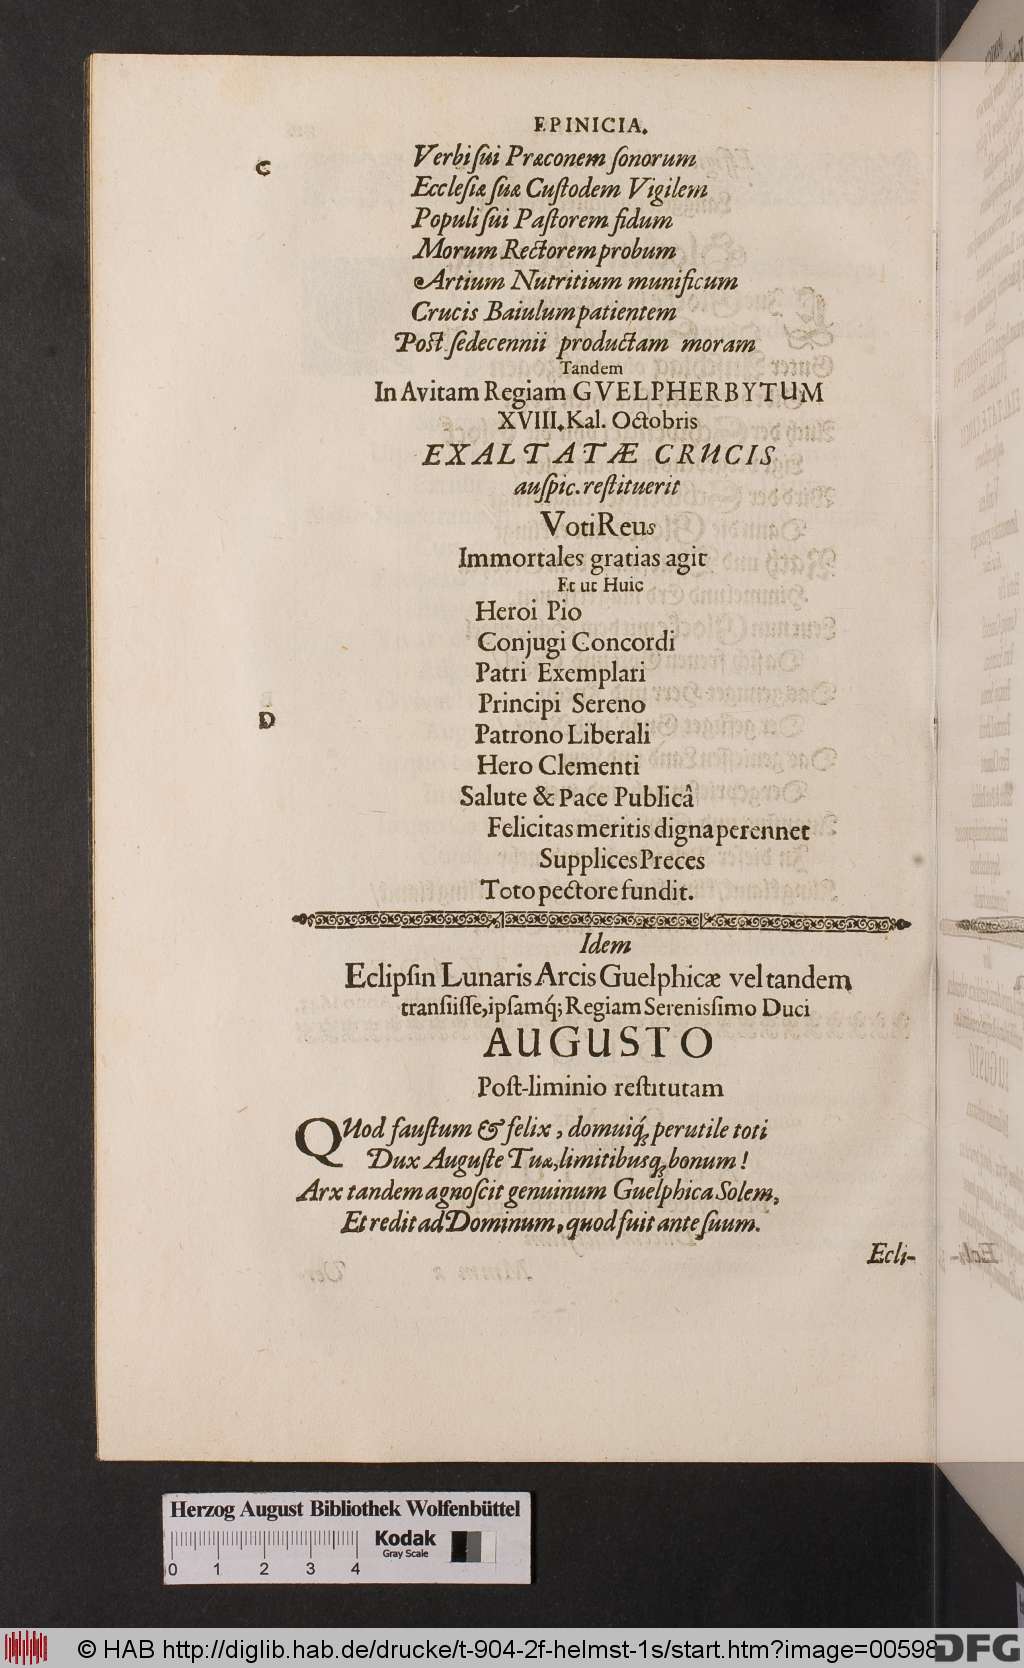 EPINICIA.
C
Verbi ſui Præconem ſonorum
Eccleſiæ ſuæ Cuſtodem Vigilem
Populi ſui Paſtorem fidum
Morum Rectorem probum
Artium Nutritium munificum
Crucis Baiulum patientem
Poſt ſedecennii productam moram
Tandem
In Avitam Regiam GVELPHERBYTUM
XVIII. Kal. Octobris
EXALTATÆ CRUCIS
auſpic. reſtituerit
Voti Reus
Immortales gratias agit
Et ut Huic
Heroi Pio
Conjugi Concordi
Patri Exemplari
Principi Sereno
D
Patrono Liberali
Hero Clementi
Salute & Pace Publicâ
Felicitas meritis digna perennet
Supplices Preces
Toto pectore fundit.
Idem
Eclipſin Lunaris Arcis Guelphicæ vel tandem
tranſiiſſe, ipſamq́; Regiam Serenisſimo Duci
AUGUSTO
Poſt-liminio reſtitutam
QUod fauſtum & felix, domuiq́; perutile toti
Dux Auguſte Tuæ, limitibusq; bonum!
Arx tandem agnoſcit genuinum Guelphica Solem,
Et redit ad Dominum, quod fuit ante ſuum.
Ecli-
Herzog August Bibliothek Wolfenbüttel
Kodak
Gray Scale
0 1 2 3 4
© HAB http://diglib.hab.de/drucke/t-904-2f-helmst-1s/start.htm?image=00598
DFG